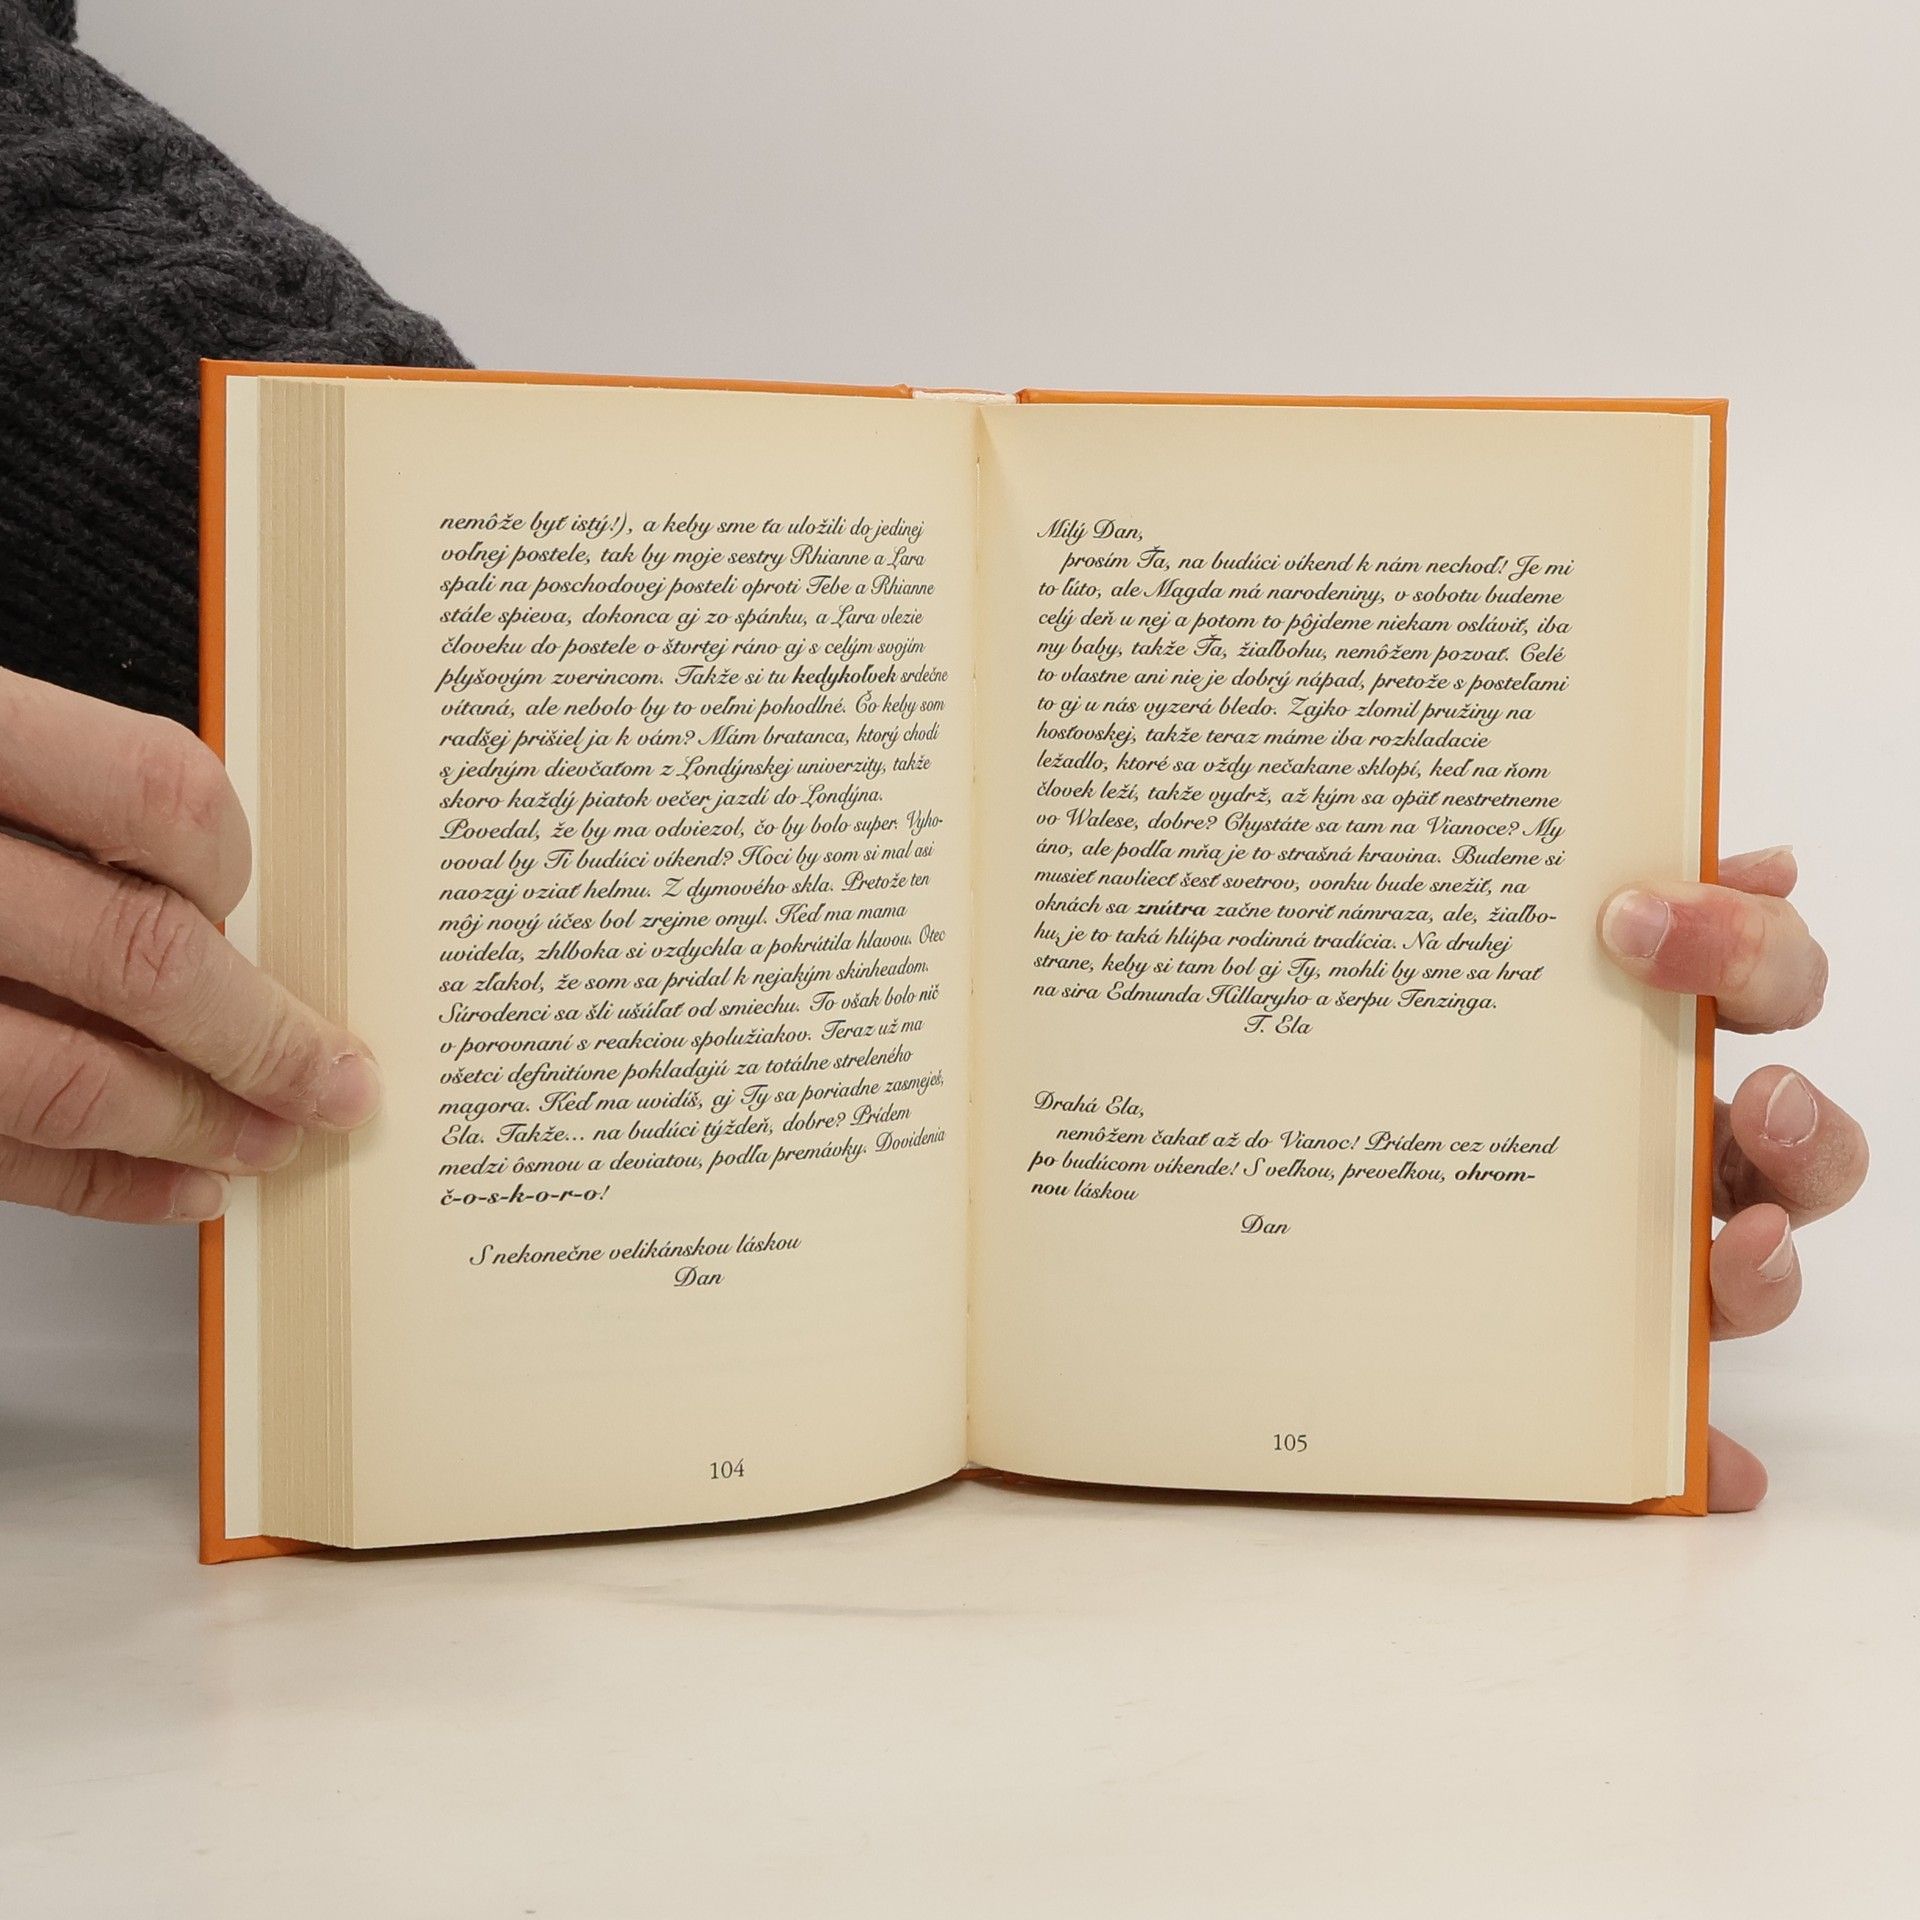 nemôže byť istý!), a keby sme ťa uložili do jedinej
voľnej postele, tak by moje sestry Rhianne a Lara
spali na poschodovej posteli oproti Tebe a Rhianne
stále spieva, dokonca aj zo spánku, a Lara vlezie
človeku do postele o štvrtej ráno aj s celým svojím
plyšovým zverincom. Takže si tu kedykoľvek srdečne
vítaná, ale nebolo by to veľmi pohodlné. Čo keby som
radšej prišiel ja k vám? Mám bratanca, ktorý chodí
s jedným dievčaťom z Londýnskej univerzity, takže
skoro každý piatok večer jazdí do Londýna.
Povedal, že by ma odviezol, čo by bolo super. Vyho-
voval by Ti budúci víkend? Hoci by som si mal asi
naozaj vziať helmu. Z dymového skla. Pretože ten
môj nový účes bol zrejme omyl. Keď ma mama
uvidela, zhlboka si vzdychla a pokrútila hlavou. Otec
sa zľakol, že som sa pridal k nejakým skinheadom.
Súrodenci sa šli ušúľať od smiechu. To však bolo nič
v porovnaní s reakciou spolužiakov. Teraz už ma
všetci definitívne pokladajú za totálne streleného
magora. Keď ma uvidíš, aj Ty sa poriadne zasmeješ,
Ela. Takže... na budúci týždeň, dobre? Prídem
medzi ôsmou a deviatou, podľa premávky. Dovidenia
č-o-s-k-o-r-o!
S nekonečne velikánskou láskou
Dan
104
Milý Dan,
prosím Ťa, na budúci víkend k nám nechoď! Je mi
to ľúto, ale Magda má narodeniny, v sobotu budeme
celý deň u nej a potom to pôjdeme niekam osláviť, iba
my baby, takže Ťa, žiaľbohu, nemôžem pozvať. Celé
to vlastne ani nie je dobrý nápad, pretože s posteľami
to aj u nás vyzerá bledo. Zajko zlomil pružiny na
hosťovskej, takže teraz máme iba rozkladacie
ležadlo, ktoré sa vždy nečakane sklopí, keď na ňom
človek leží, takže vydrž, až kým sa opäť nestretneme
vo Walese, dobre? Chystáte sa tam na Vianoce? My
áno, ale podľa mňa je to strašná kravina. Budeme si
musieť navliecť šesť svetrov, vonku bude snežiť, na
oknách sa znútra začne tvoriť námraza, ale, žiaľbo-
hu, je to taká hlúpa rodinná tradícia. Na druhej
strane, keby si tam bol aj Ty, mohli by sme sa hrať
na sira Edmunda Hillaryho a šerpu Tenzinga.
T. Ela
Drahá Ela,
nemôžem čakať až do Vianoc! Prídem cez víkend
po budúcom víkende! S veľkou, preveľkou, ohrom-
nou láskou
Dan
105